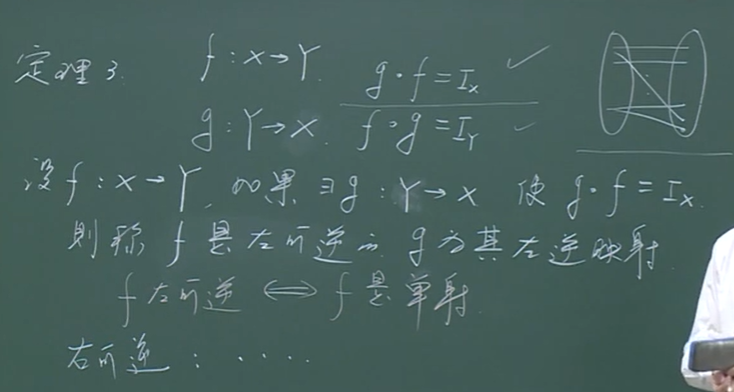 定理3. f:X→Y. g·f=I_X ✓
g:Y→X. f∘g=I_Y ✓
设f:X→Y,如果∃g:Y→X 使g·f=I_X.
则称f是左可逆的,g为其左逆映射.
f左可逆 ⟺ f是单射.
右可逆:.....